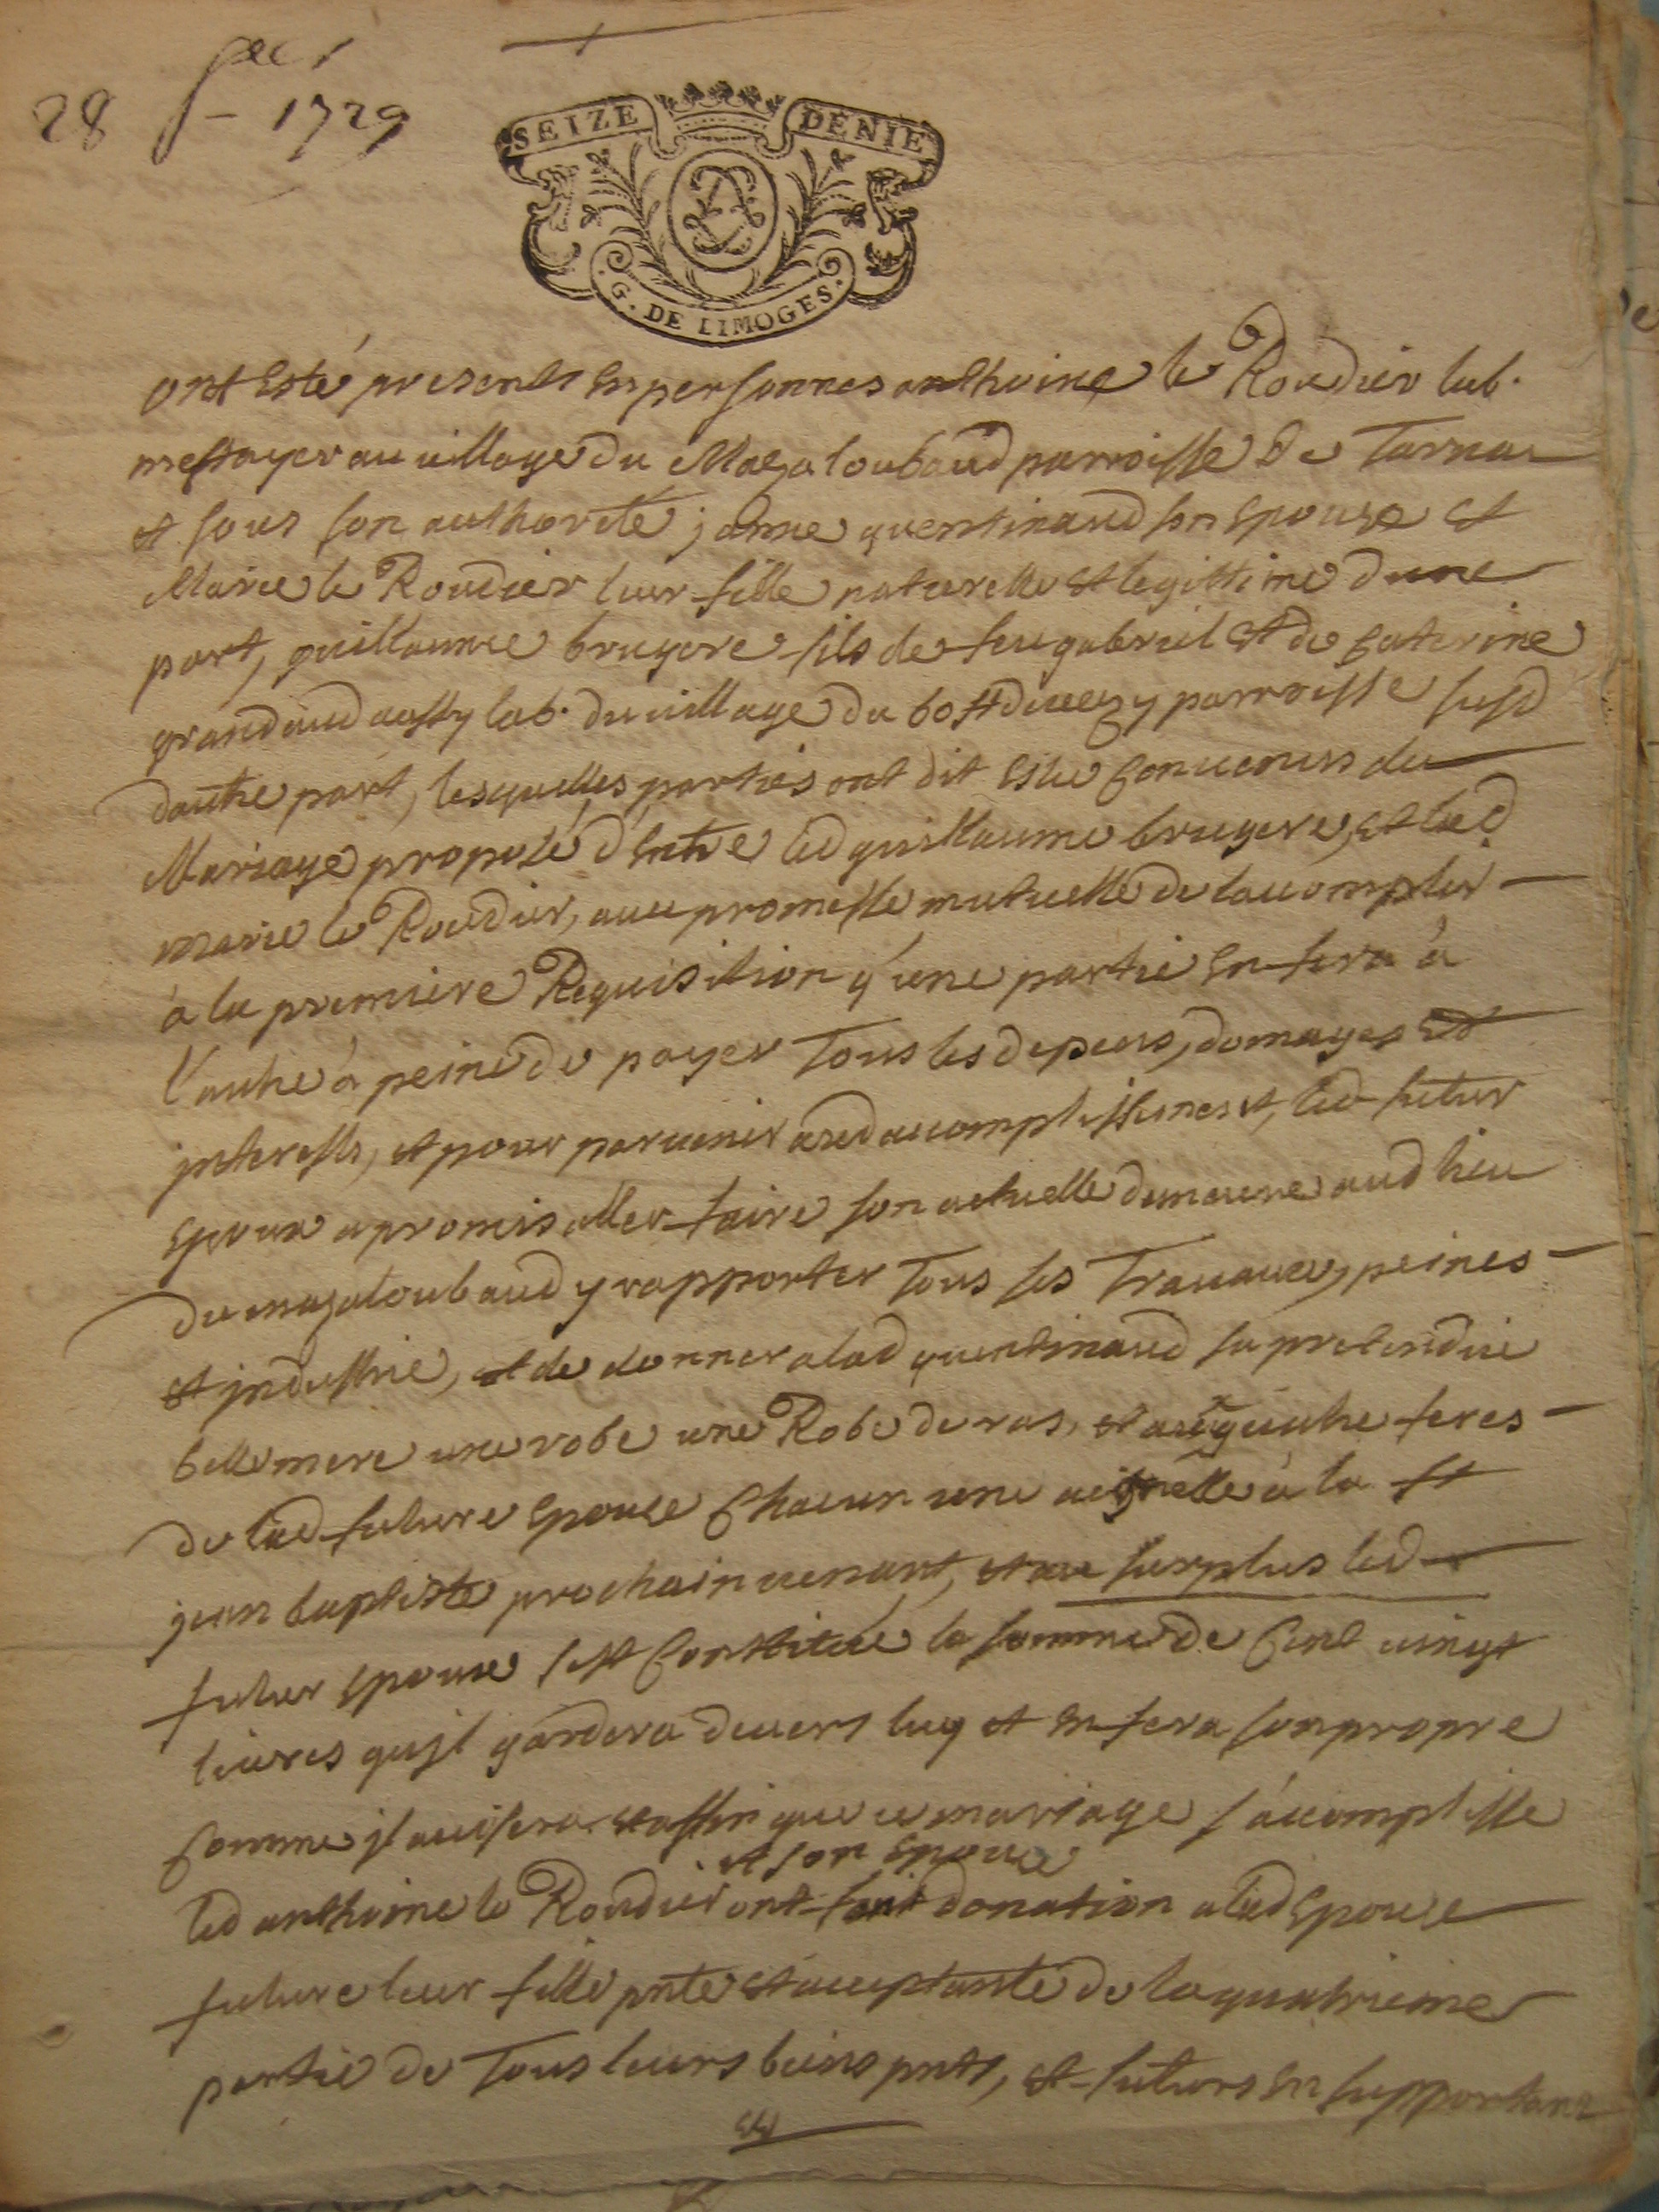 28 1729
SEIZE DENIE
G. DE LIMOGES.
ont esté presents en personnes anthoine le Roudier lab.
mestayer au village du Mazaloubaud parroisse de Tarnac
et sous son authorité janne quentinaud son epouze et
Marie le Roudier leur fille naturelle et legittime dune
part, guillaume brugere fils de feu gabriel et de Caterine
grandaud aussy lab. du village du parroisse susd
dautre part, lesquelles parties ont dit estre Convenus du
Mariage proposé d'entre led guillaume brugere, et lad
marie le Roudier, avec promesse mutuelle de lacomplir
à la premiere Requisition q'une partie en fera à
l'autre à peine de payer Tous les depens, domages et
interests, et pour parvenir aud acomplissement, led futur
epoux a promis aller faire son actuelle demeure aud lieu
du mazaloubaud y rapporter Tous ses Travaux, peines
et industrie, et de donner a lad quentinaud sa pretendue
belle mere une robe une Robe de ras, et aux quatre
de lad future epouse Chacun une à la st
jean baptiste prochain venant, et au surplus led
futur epoux sest Constitué la somme de Cent vingt
livres qu'jl gardera devers luy et en fera son propre
Comme jl avisera. et affin que ce mariage s'acomplisse
et son epouse
led anthoine le Roudier ont fait donation a lad epouse
future leur fille pnte et aceptante de la quatrieme
partie de Tous leurs biens pnts, et futurs en supportant